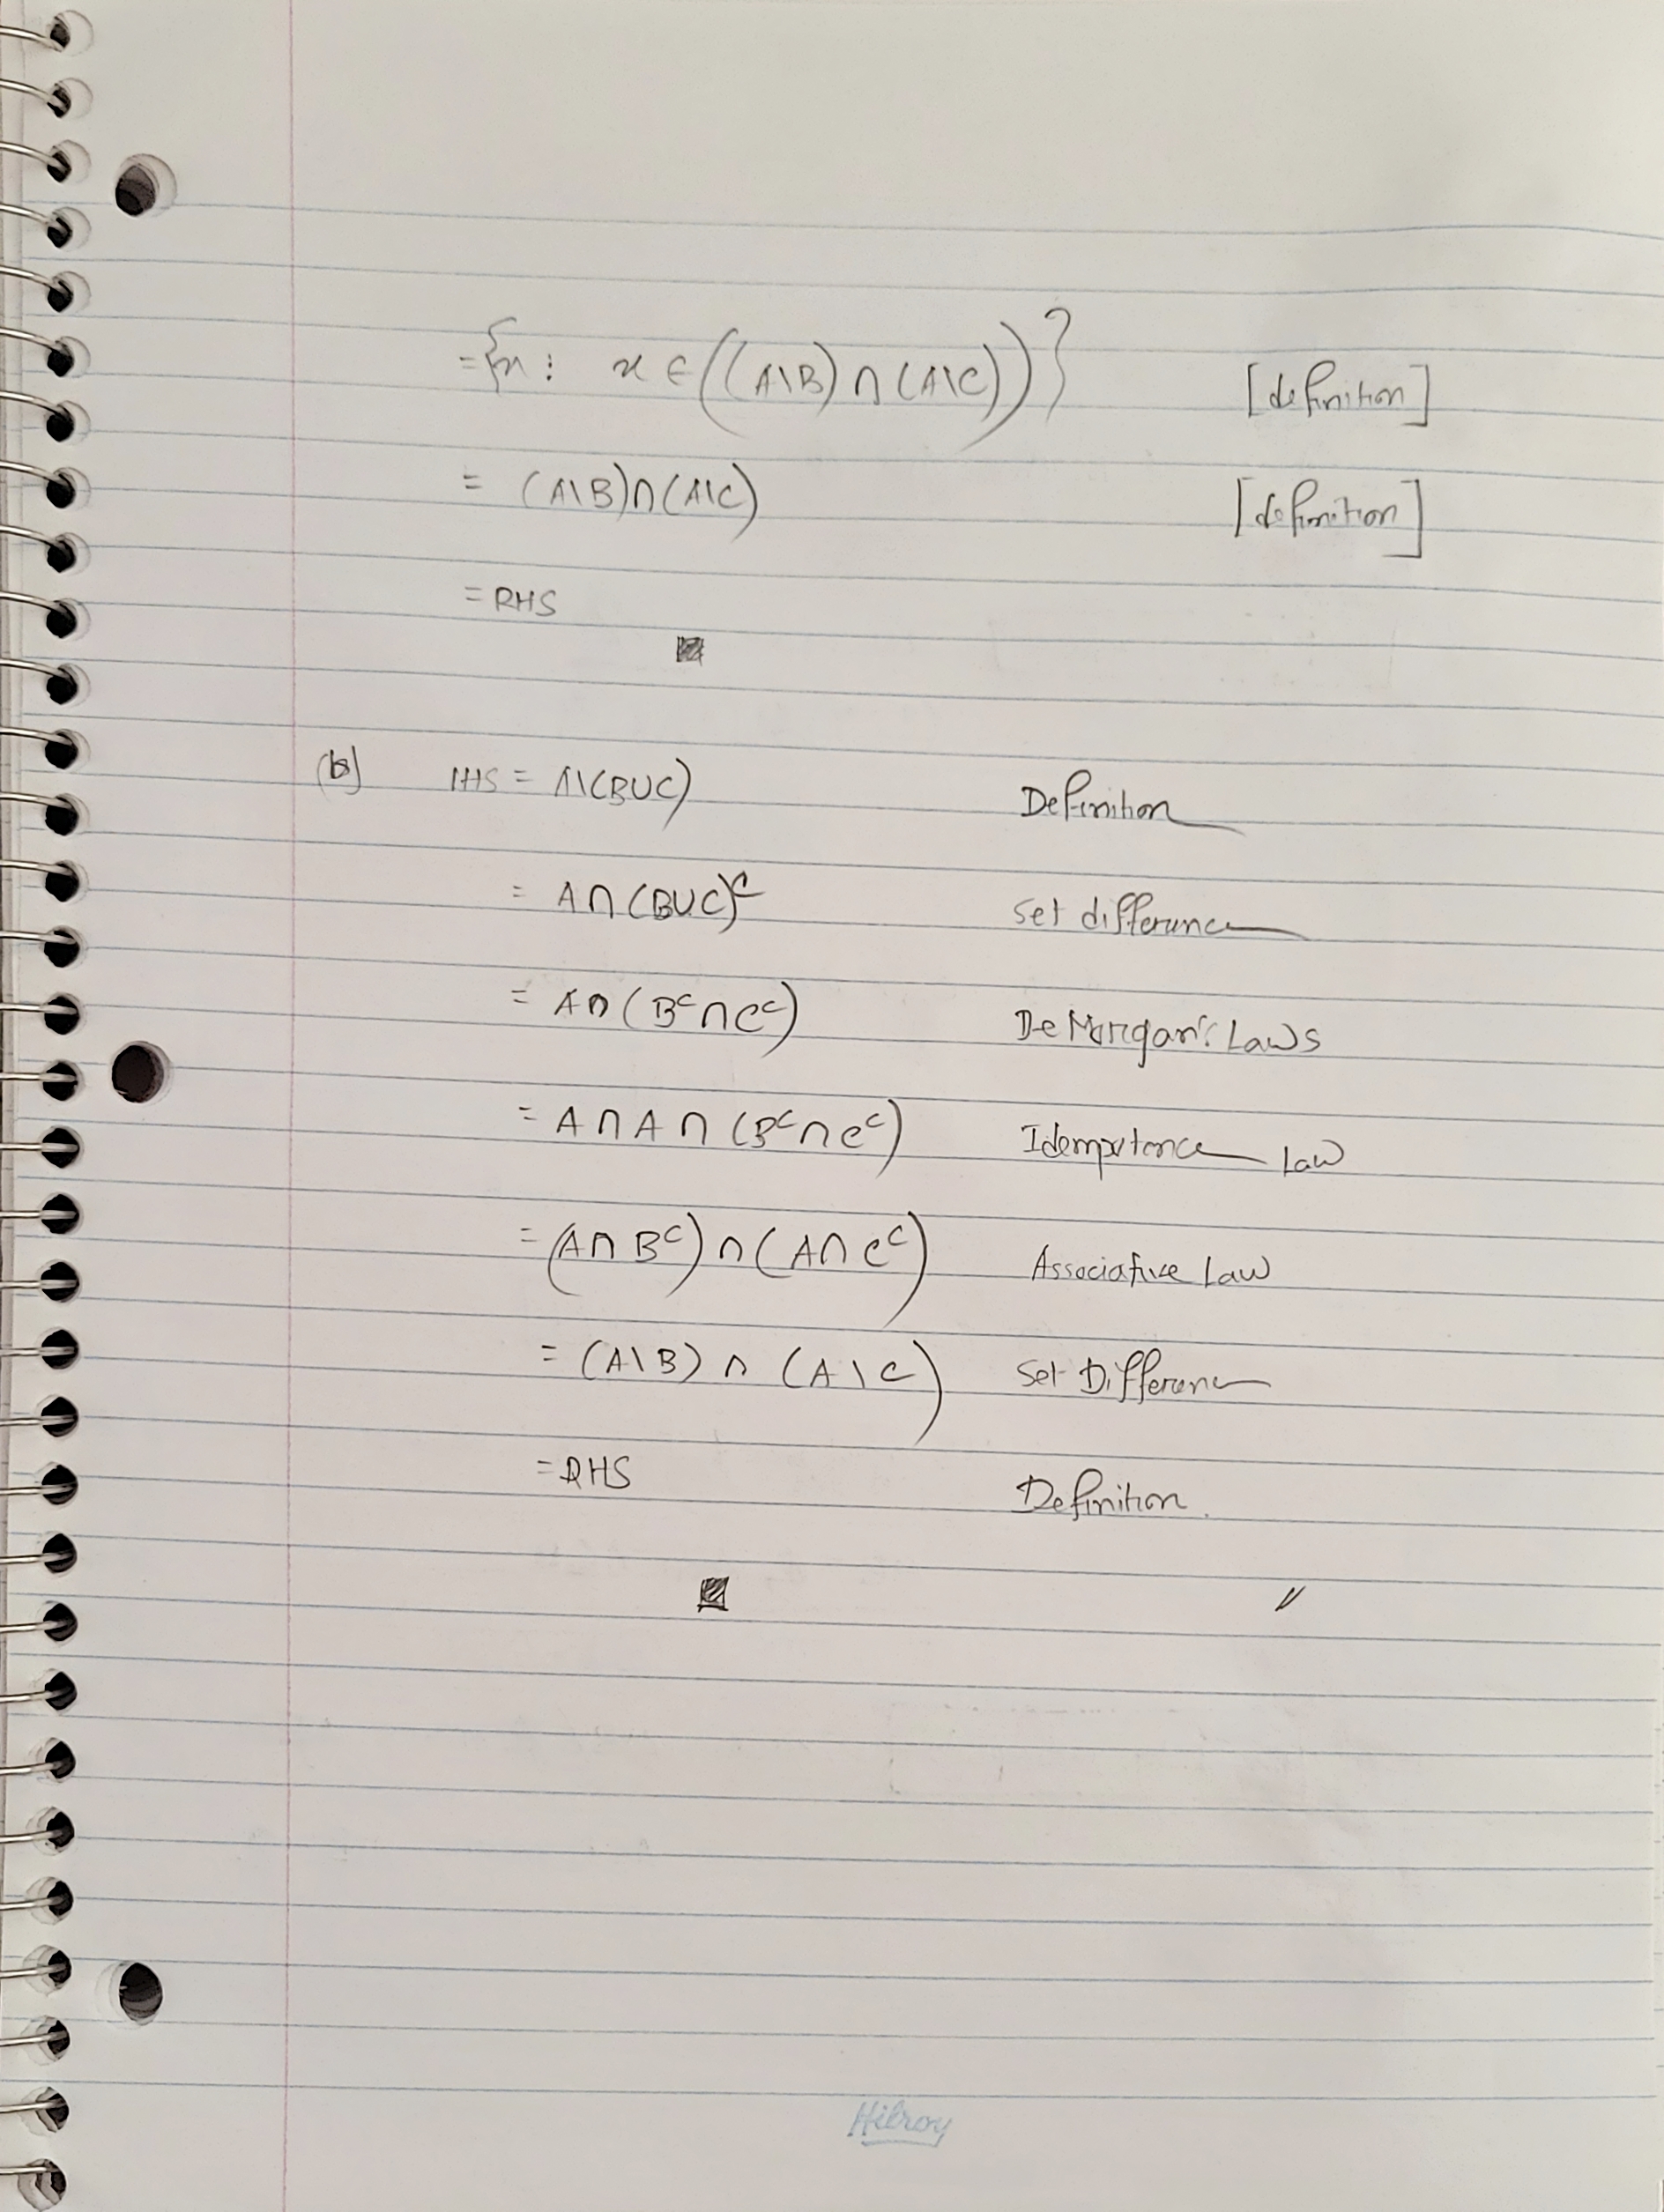 ={x : x ∈ ((A\B) ∩ (A\C))} [definition]
= (A\B)∩(A\C) [definition]
= RHS
(b) LHS = A\(B∪C) Definition
= A∩(B∪C)ᶜ Set difference
= A∩(Bᶜ∩Cᶜ) De Morgan's Laws
= A∩A∩(Bᶜ∩Cᶜ) Idempotence Law
= (A∩Bᶜ)∩(A∩Cᶜ) Associative Law
= (A\B)∩(A\C) Set Difference
= RHS Definition.
Hilroy